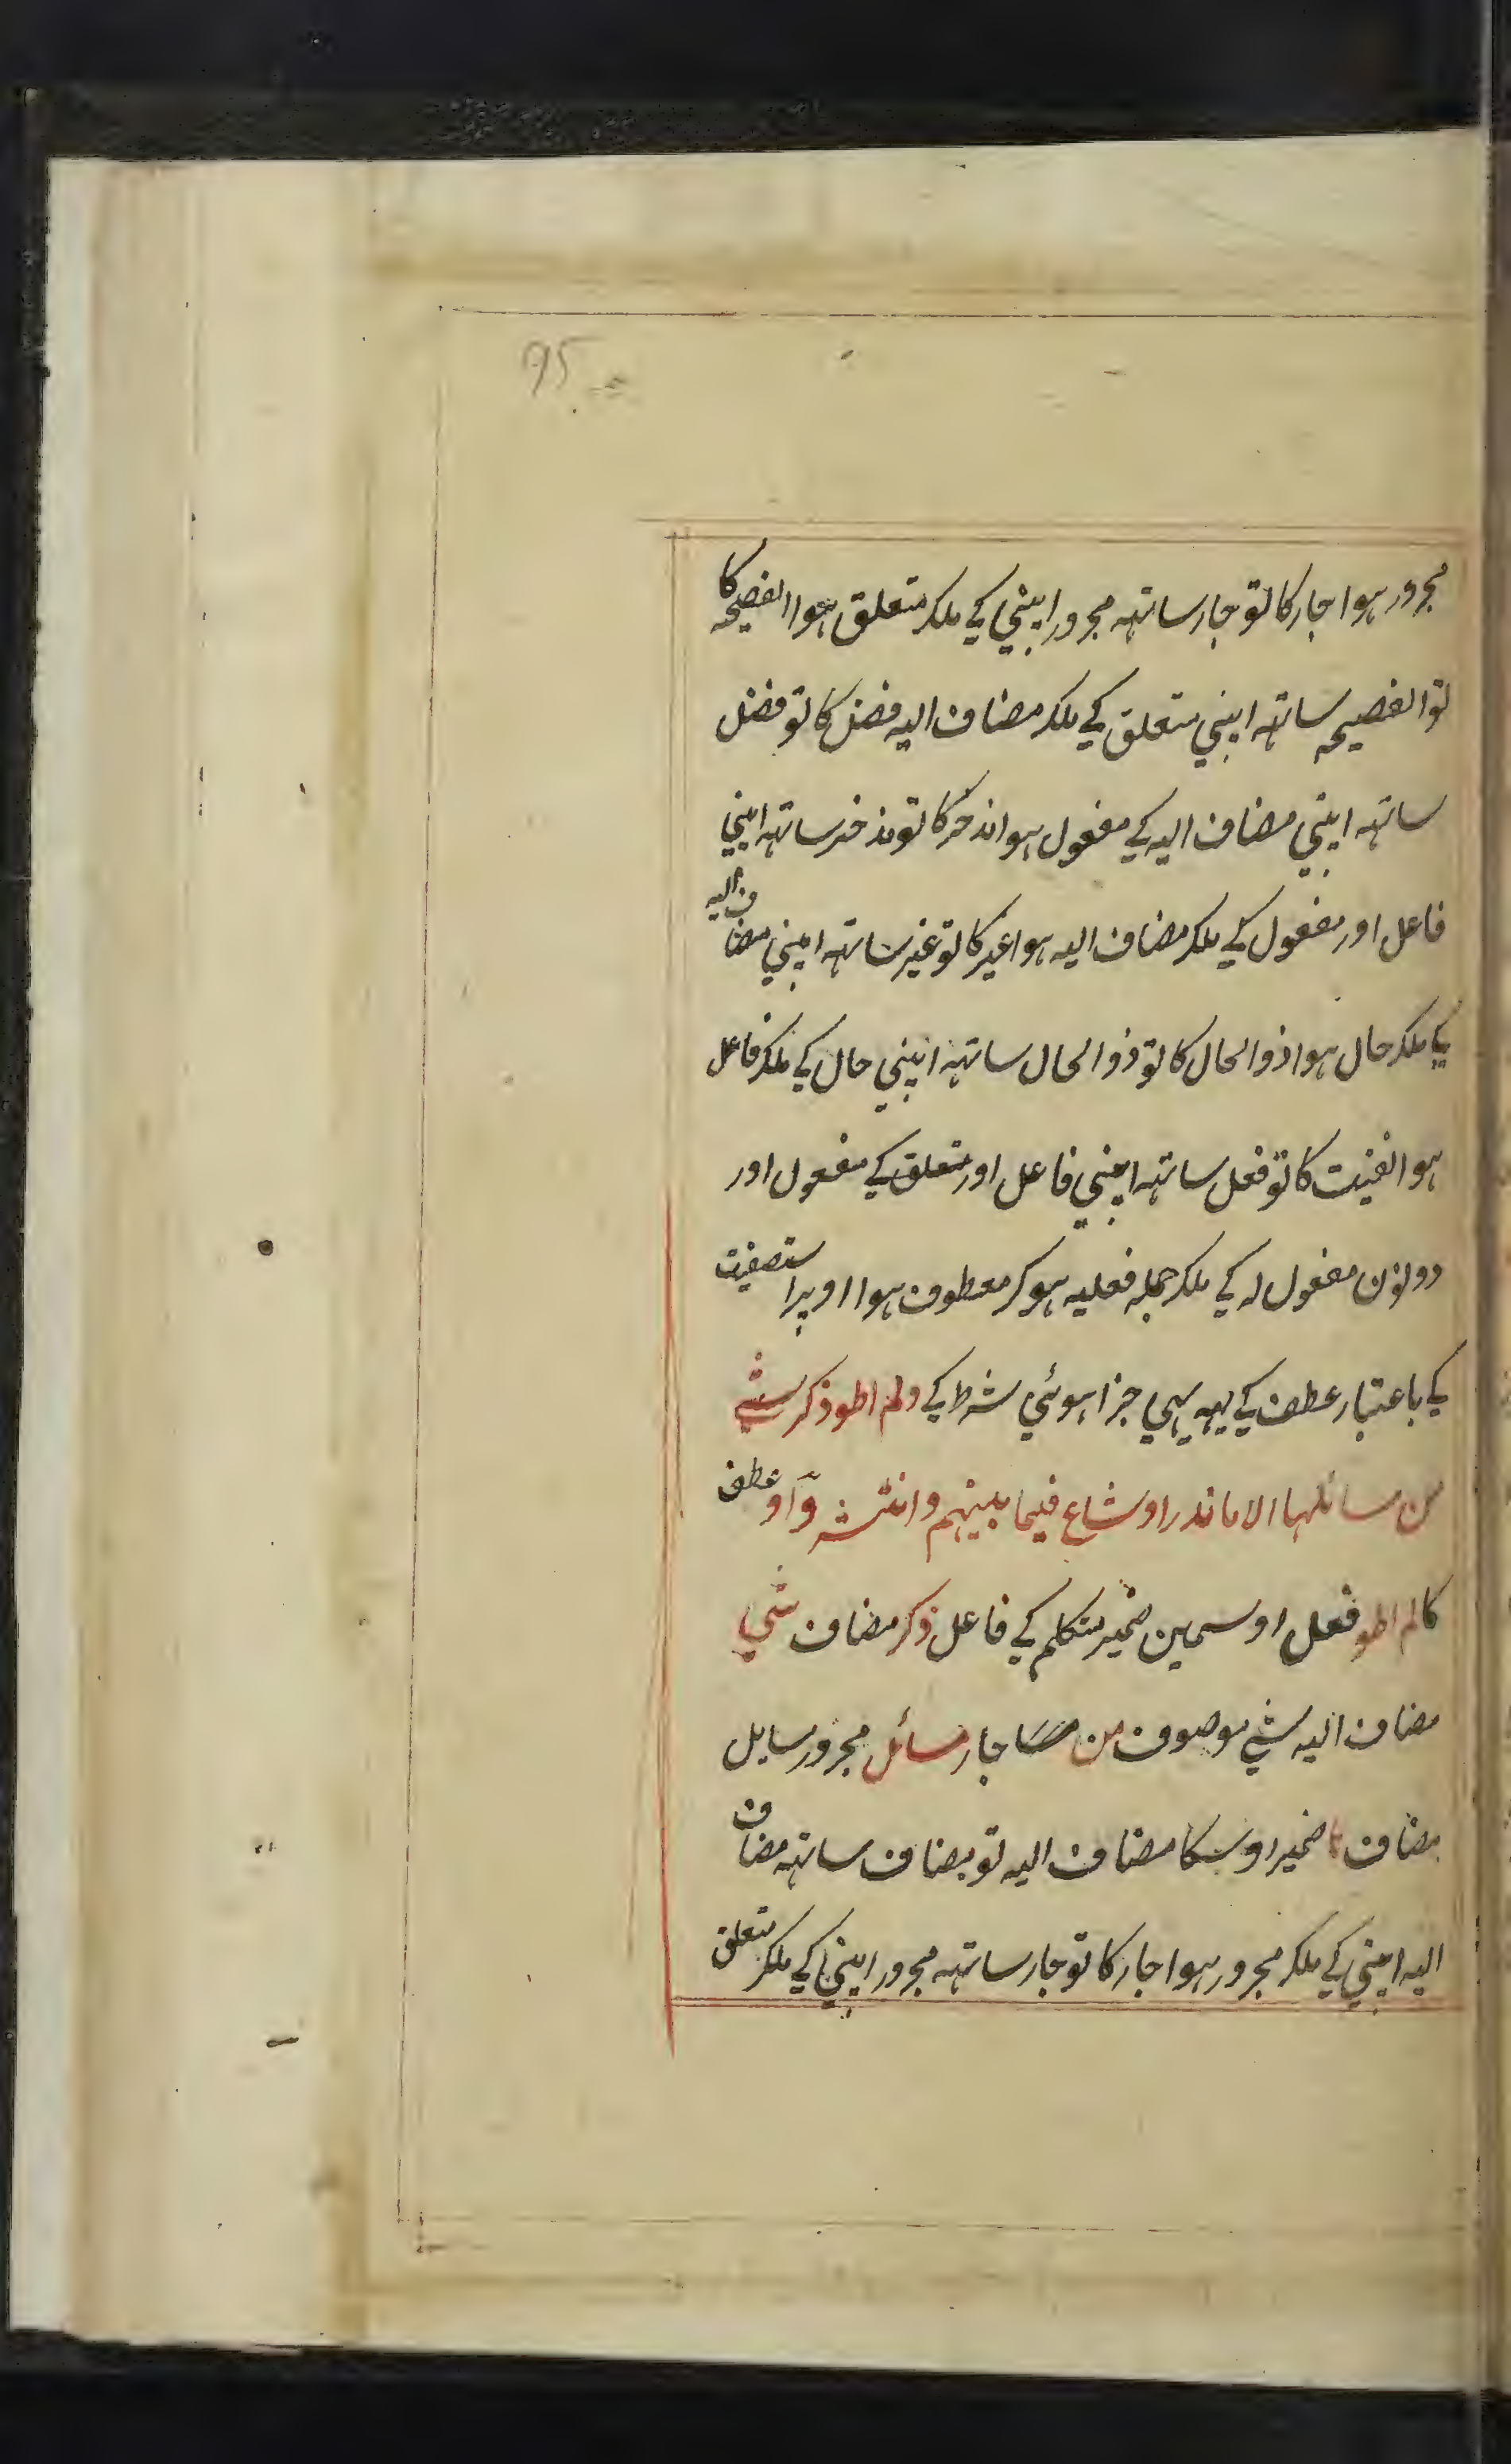 95
مجرور ہوا جار کا تو جار ساتہہ مجرور اپنی کے ملکر متعلق ہوا الفصیحہ کا
تو الفصیحہ ساتہہ اپنی متعلق کے ملکر مضاف الیہ فضل کا تو فضل
ساتہہ اپنی مضاف الیہ کے مفعول ہوا مدخر کا تو مدخر ساتہہ اپنی
فاعل اور مفعول کے ملکر مضاف الیہ ہوا غیر کا تو غیر ساتہہ اپنی مضاف الیہ
کے ملکر حال ہوا ذوالحال کا تو ذوالحال ساتہہ اپنی حال کے ملکر فاعل
ہوا الفیت کا تو فعل ساتہہ اپنی فاعل اور متعلق کے مفعول اور
دونون مفعول لہ کے ملکر جملہ فعلیہ ہوکر معطوف ہوا اوپر استصفیت
کے باعتبار عطف کے یہہ بہی جزا ہوئی شرط کے ولم اطو ذکر شئے
من مسائلہا الا ما ندر او شاع فیما بینہم وانتشر واو عطف
کا لم اطو فعل اوسمین ضمیر متکلم کے فاعل ذکر مضاف شئی
مضاف الیہ شئے موصوف من جار مسائل مجرور مسایل
مضاف ہا ضمیر اوسکا مضاف الیہ تو مضاف ساتہہ مضاف
الیہ اپنی کے ملکر مجرور ہوا جار کا تو جار ساتہہ مجرور اپنی کے ملکر متعلق